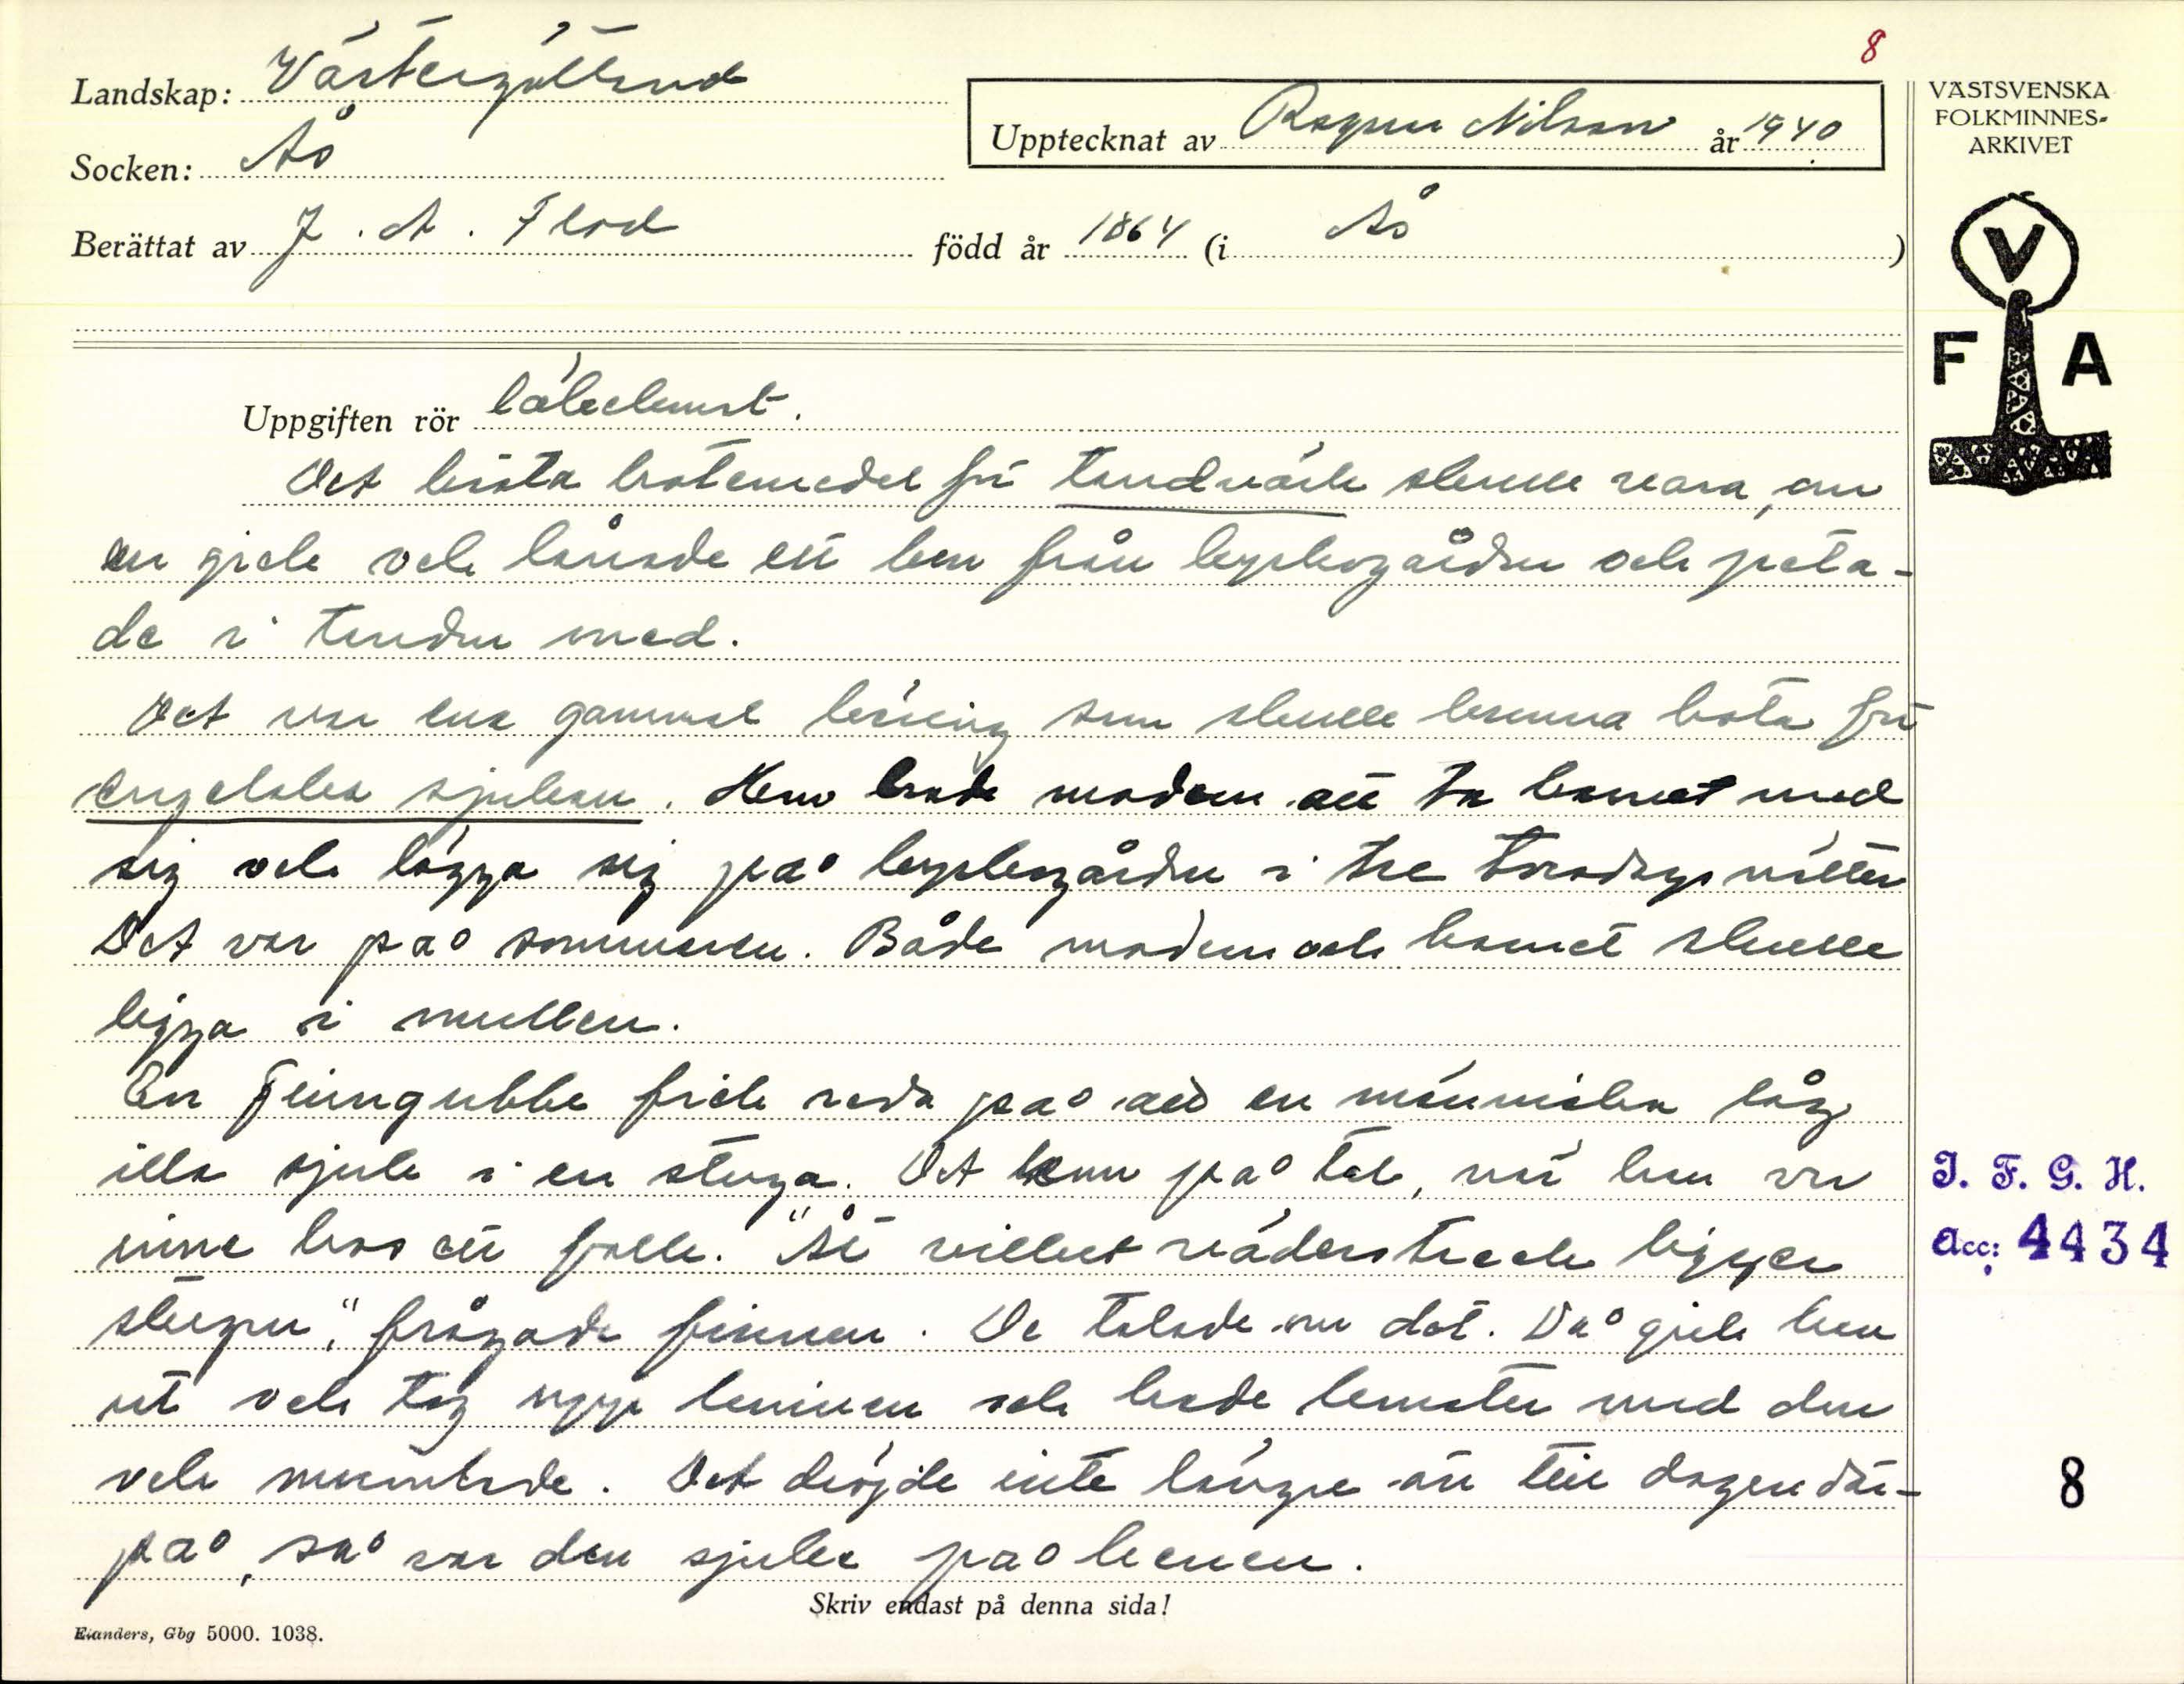 8
Landskap: Västergötland
Upptecknat av Ragnar Nilsson år 1940
VÄSTSVENSKA
FOLKMINNES-
ARKIVET
Socken: Ås
Berättat av J. A. Flod född år 1864 (i Ås )
V
F A
Uppgiften rör läkekonst.
Det bästa botemedel för tandvärk skulle vara, om
en gick och lånade ett ben från kyrkogården och peta-
de i tanden med.
Det var ena gammal käring som skulle kunna bota för
engelska sjukan. Hon bade modern att ta barnet med
sig och lägga sig på kyrkogården i tre torsdagsnätter
Det var på sommaren. Både modern och barnet skulle
ligga i mullen.
En Finngubbe fick reda på att en människa låg
illa sjuk i en stuga. Det kom på tal, när han var
inne hos ett folk. "Åt vilket väderstreck ligger
stugan", frågade finnen. De talade om det. Då gick han
ut och tog upp kniven och hade konster med den
och mumlade. Det dröjde inte längre än till dagen där-
på, så var den sjuke på benen.
I. F. G. H.
Acc: 4434
8
Skriv endast på denna sida!
Elanders, Gbg 5000. 1038.